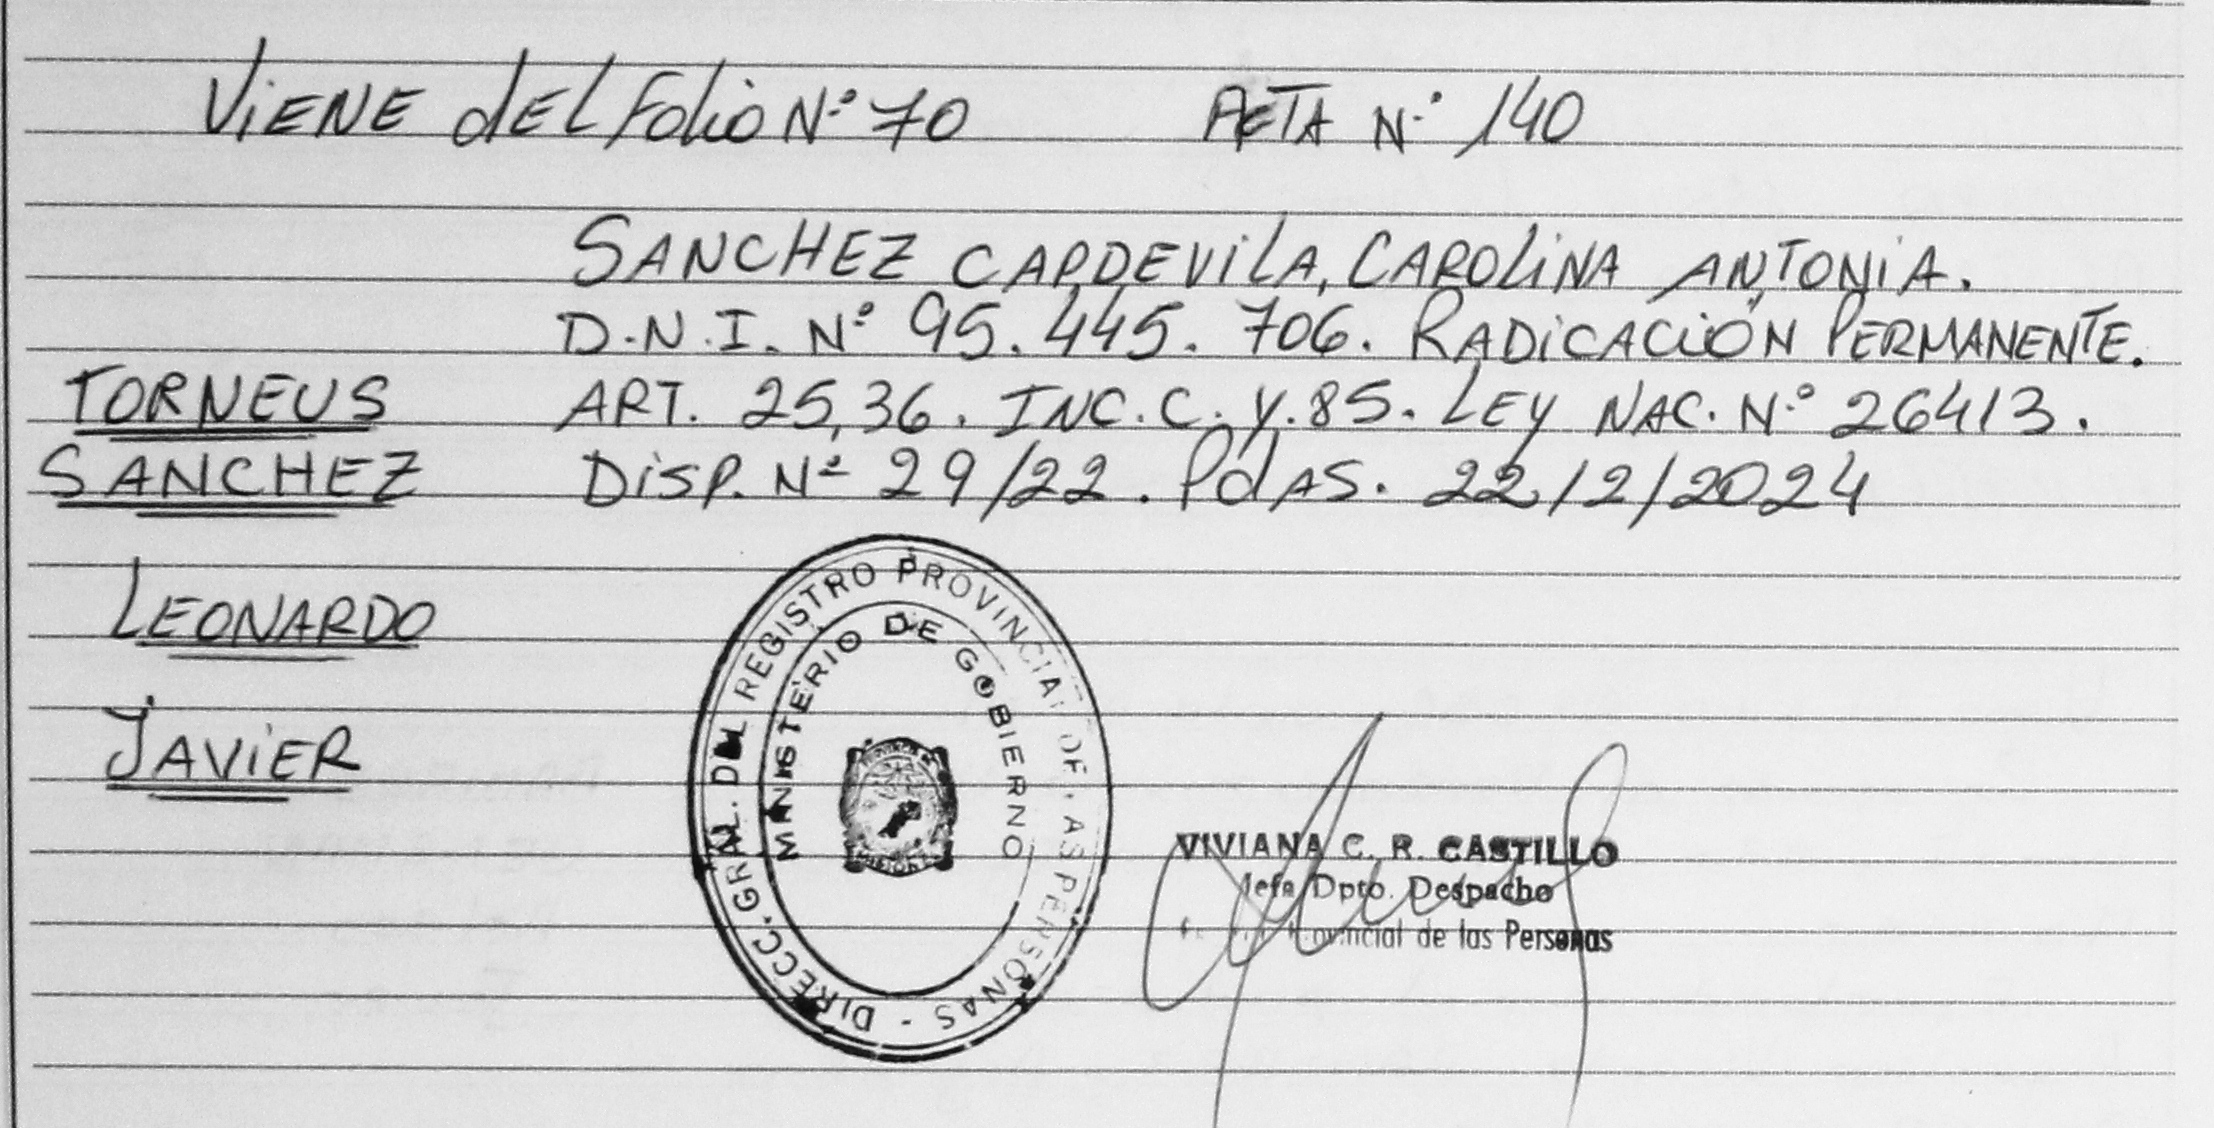 ViENE dEL Folio N° 70 ACTA N° 140
SANCHEZ CAPDEViLA, CAROLiNA ANTONiA.
D.N.I. N° 95.445.706. RADiCACiÓN PERMANENTE.
TORNEUS ART. 25,36. INC.C.y.85. LEY NAC. N° 26413.
SANCHEZ DiSP. Nº 29/22. PdAS. 22/2/2024
LEONARDO
JAViER
DIRECC. GRAL. DEL REGISTRO PROVINCIAL DE LAS PERSONAS -
MINISTERIO DE GOBIERNO
VIVIANA C. R. CASTILLO
Jefa Dpto. Despacho
Provincial de las Personas